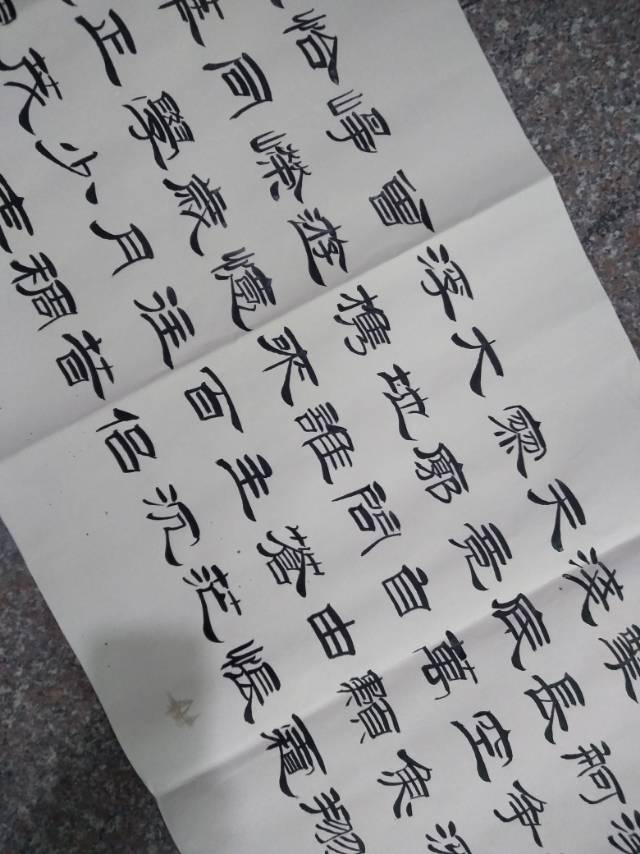 舸爭流
擊長空魚翔
淺底萬類霜
天競自由悵
寥廓問蒼茫
大地誰主沉
浮攜來百侣
曾游憶往昔
崢嶸歲月稠
恰同學少
華正茂